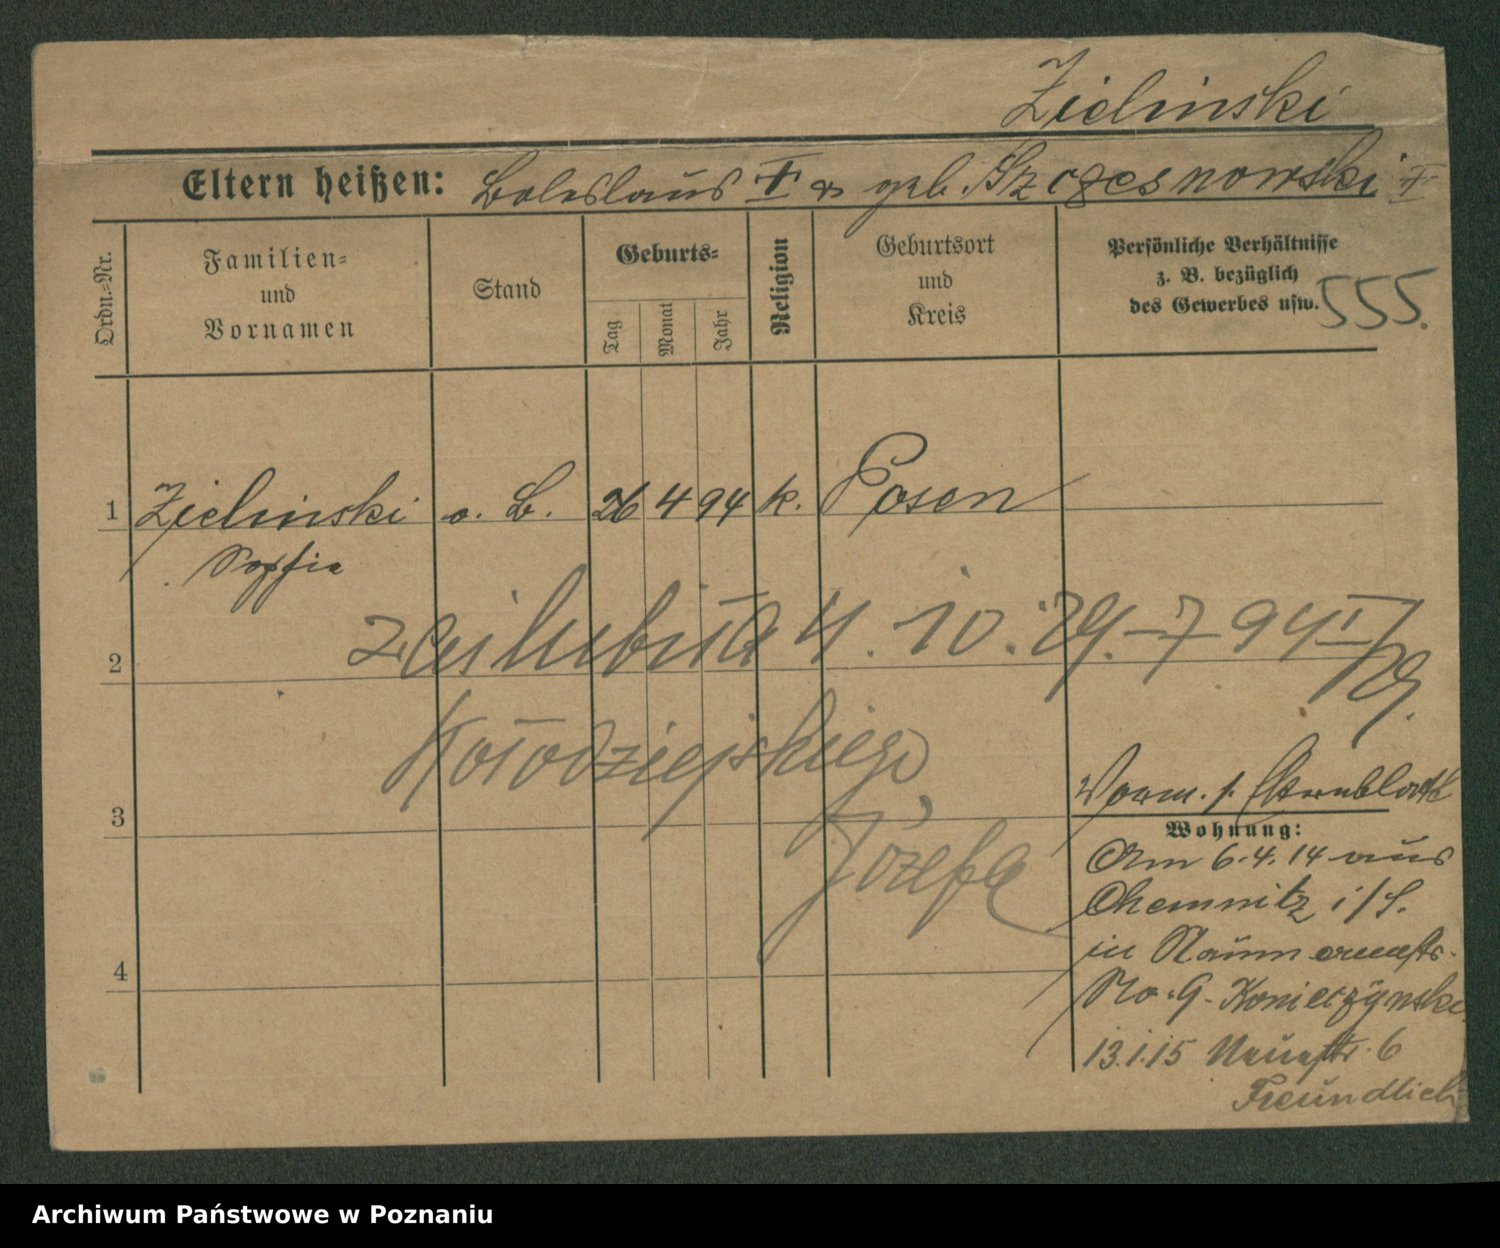 Zielinski
Eltern heißen: Boleslaus † u geb. Szczesnowski †
Ordn.-Nr.
Familien-
und
Vornamen
Stand
Geburts-
Tag
Monat
Jahr
Religion
Geburtsort
und
Kreis
Persönliche Verhältnisse
z. B. bezüglich
des Gewerbes usw.
555.
1 Zielinski o. B. 26 4 94 k. Posen
Sophie
zaślubiła 4. 10. 19
2
Kołodziejskiego
Józefa
3
Vorm. s.
Wohnung:
Am 6.4.14 aus
Chemnitz i/S.
in Naumannstr.
No. 9. Konieczynski
4
13.1.15 Neuestr. 6
Freundlich
Archiwum Państwowe w Poznaniu